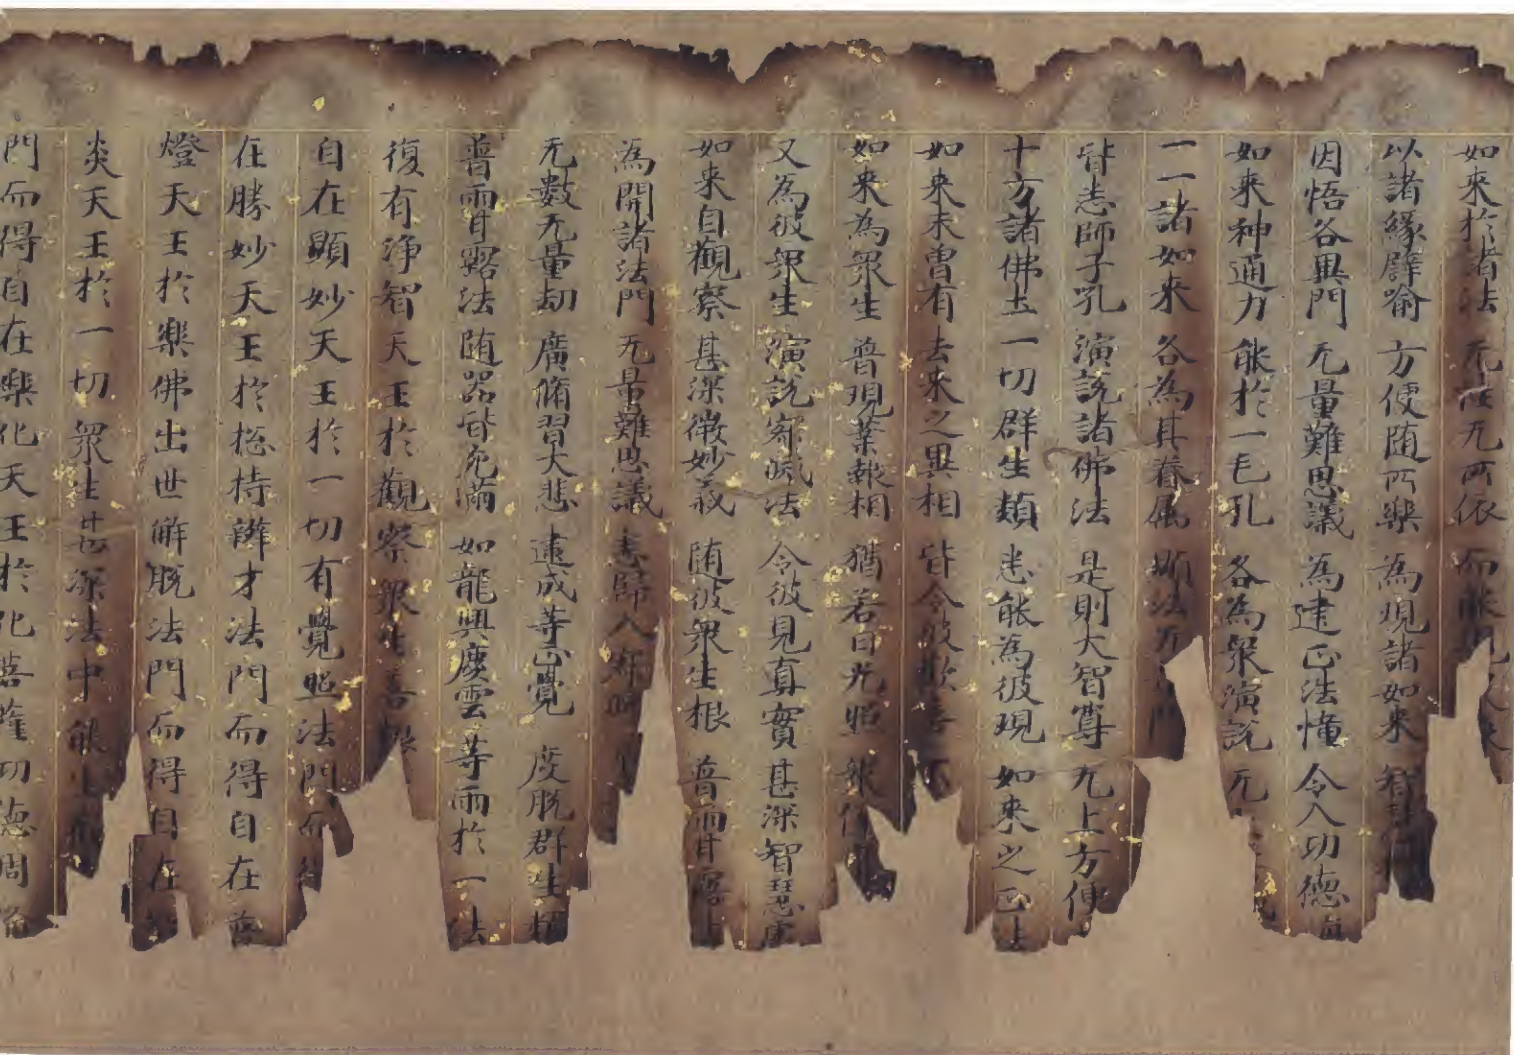 如来於諸法 无性无所依 而能
以諸緣辟喻 方便随所樂 為現諸如来
因悟各異門 无量難思議 為建正法幢 令入功德
如来神通力 能於一毛孔 各為衆演説 无
一一諸如来 各為其眷属 顯法无
皆悉師子吼 演説諸佛法 是則大智㝵 无上方便
十方諸佛土 一切群生類 悉能為彼現 如来之正
如来未曽有 去来之異相 皆令彼歡喜
如来為衆生 普現業報相 猶若日光照
又為彼衆生 演説寂滅法 令彼見真實 甚深智慧
如来自觀察 甚深微妙義 随彼衆生根 普雨甘露
為開諸法門 无量難思議 悉歸入
无數无量劫 廣脩習大悲 逮成等正覺 度脱群生
普雨甘露法 随器皆充滿 如龍興慶雲 等雨於一法
復有淨智天王於觀察衆生善根
自在顯妙天王於一切有覺照法門而
在勝妙天王於揔持辯才法門而得自在
燈天王於樂佛出世解脱法門而得自在
炎天王於一切衆生甚深法中能生
門而得自在樂化天王於化菩薩功德周